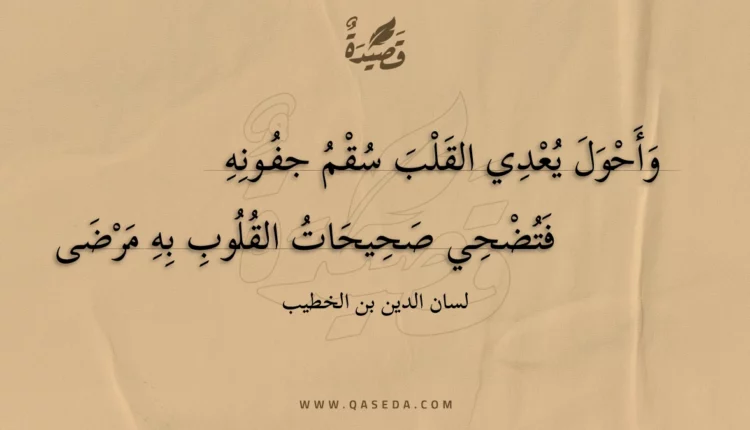 قَصِيدَةٌ
وَأَحْوَلَ يُعْدِي القَلْبَ سُقْمُ جفُونِهِ
فَتُضْحِي صَحِيحَاتُ القُلُوبِ بِهِ مَرْضَى
لسان الدين بن الخطيب
WWW.QASEDA.COM